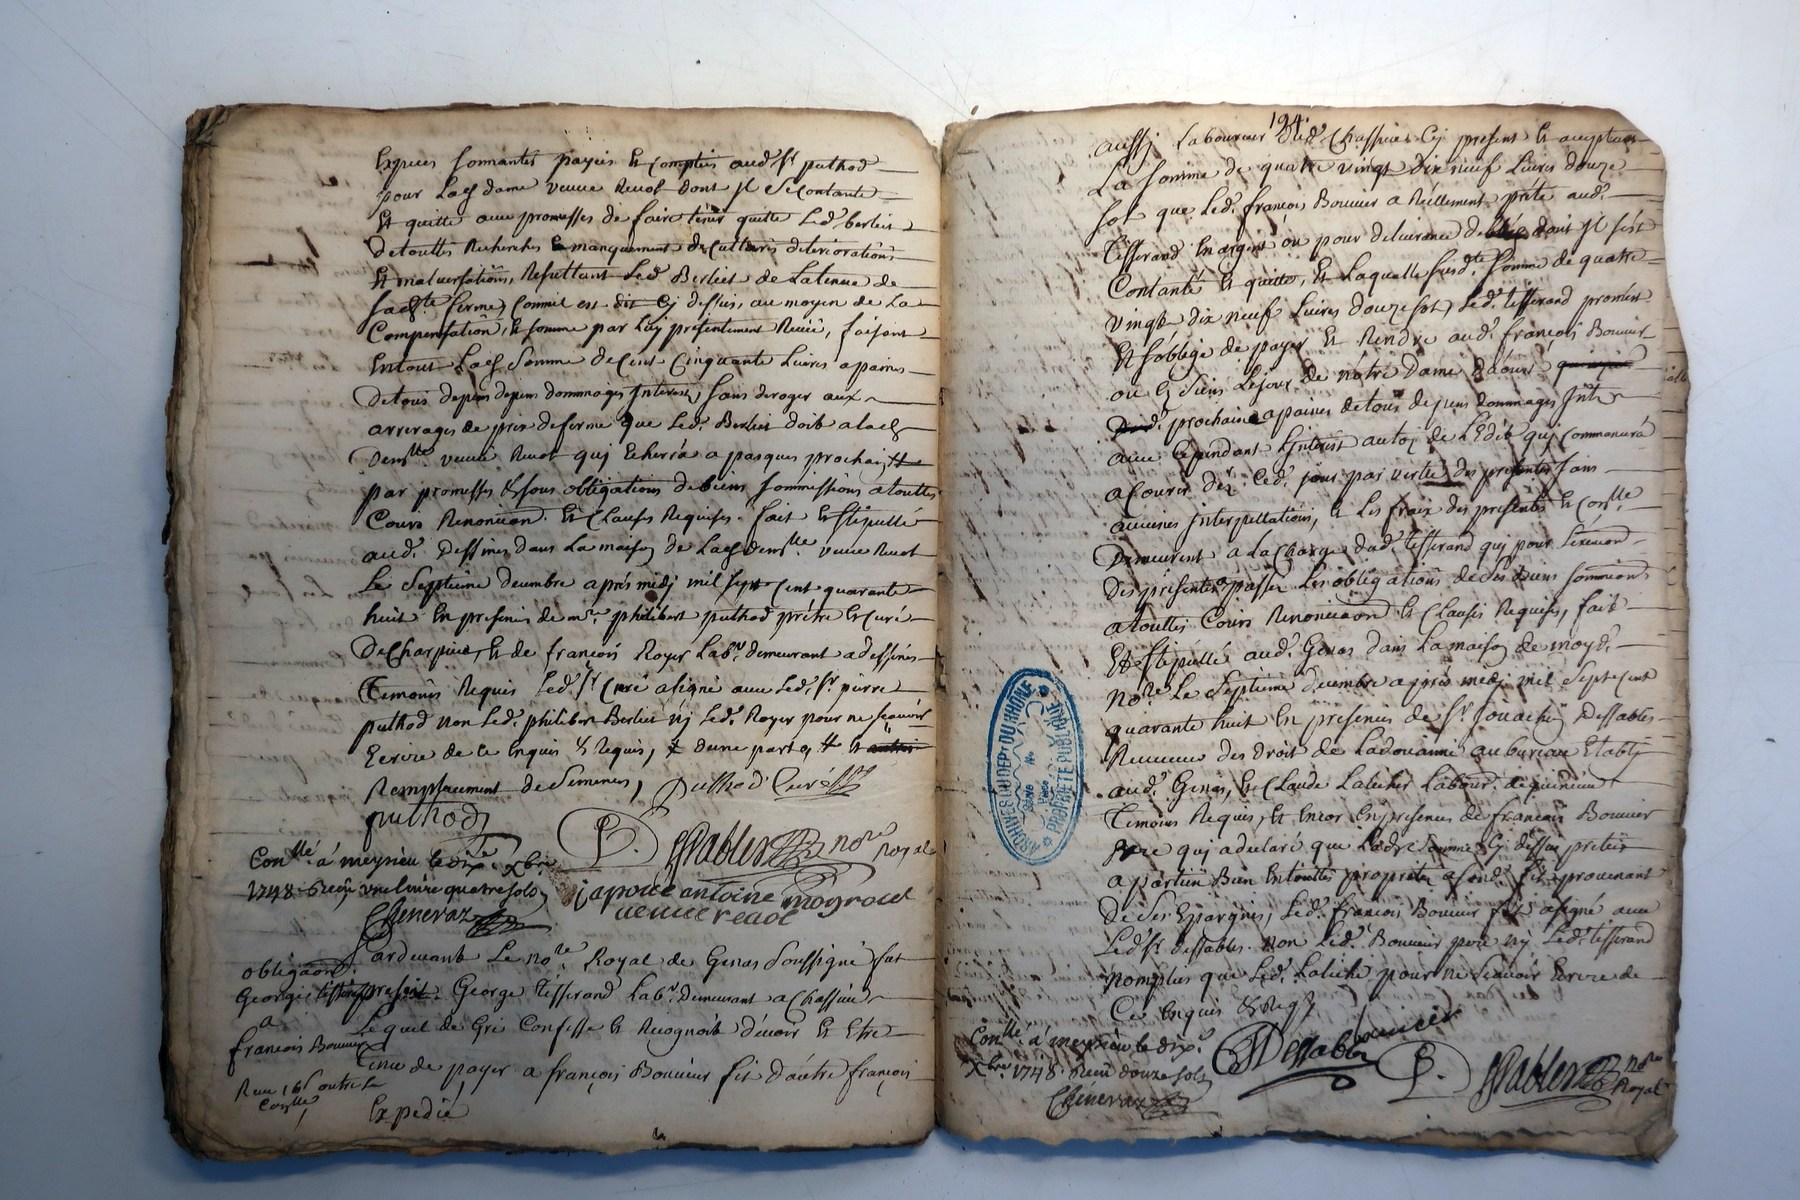 Especes sonnantes payées et comptés aud. Sr puthod
pour lad dame veuve Revol dont il se contante
Et quitte avec promesses de faire tenir quitte led. berliet
de touttes Recherches manquement de Cultures deteriorations
Et malversations, Resultant led. Berliet de la tenue de
sad.te ferme, Comme est dit cy dessus, au moyen de la
Compensation, et somme par luy presentement Receüe, faisant
En tout lad somme de Cent Cinquante Livres a peines
de tous depens dommages Interest, sans deroger aux
arrerages de prix de ferme que led. Berliet doib a lad
dem.lle veuve Revol quy Echerra a pasques prochain
par promesses & sous obligations de biens sommissions a touttes
Cours Renonciaon. Et Clauses Requises. fait Et stipullé
aud. dessines dans la maison de lad dem.lle veuve Revol
le septieme decembre après midy mil sept cent quarante
huit En presence de m.re philibert puthod prêtre et curé
de Charpieu, Et de françois Royer lab.r demeurant a dessines
Temoins Requis led. Sr Curé a signé avec led. Sr pierre
puthod non led. philibert Berliet ny led. Royer pour ne sçavoir
Ecrire de ce Enquis & Requis,
Remplacement de semences, Puthod Curé
puthod
P. Dessables no.re Royal
Con.llé a meysieu le dix Xbre
1748 Receu une livre quatre sols
Cheneraz
antoine
veuve revol
Pardevant le no.re Royal de Genas soussigné fut
obligaon.
present George tisserand lab.r demeurant a Chassieu
George tisserand
a
lequel de Gré Confesse et Recognoit devoir Et Etre
françois Bouvier
Tenu de payer a françois Bouvier fils d'autre françois
Expedié
194.
aussy laboureur dud. Chassieu Cy present Et acceptant
La somme de quatre vingt dix neuf Livres douze
sols que led. françois Bouvier a Réellement prêté aud.
Tisserand En argent ou pour delivrance de bled dont il s'est
Contanté Et quitte, Et laquelle susd.te somme de quatre
vingt dix neuf Livres douze sols, led. tisserand promet
Et s'oblige de payer Et Rendre aud. françois Bouvier
ou Es siens le jour de nôtre Dame d'aoust
prochaine a peines de tous depens dommages Int.
avec Cependant l'Interest au taux de l'Edit quy commencera
a Courir dez Ced. jour par vertu des presentes sans
aucunes Interpellations, Et les fraix des presentes Et con.lle
Demeurent a la Charge dud. tisserand quy pour l'éxécuon.
des presentes a passer les obligations de ses biens sommissions
a touttes Cours Renonciaon Et Clauses Requises, fait
Et stipullé aud. Genas dans la maison de moyd.
No.re le septieme decembre après midy mil sept cent
quarante huit En presences de Sr Joachin Dessables
Receveur des droit de la doüanne au bureau Etably
aud. Genas, Et Claude
Temoins Requis, Et Encor En presence de françois Bouvier
pere quy a declaré que lad.te somme Cy dessus pretée
apartien Bien En touttes proprietes a sond. fils provenant
de ses Epargnes, led. françois Bouvier fils a signé avec
led. Sr dessables. non led. Bouvier pere ny led. tisserand
non plus que led. pour ne sçavoir Ecrire de
Ce Enquis & Reqs
bouvier
Con.llé a meysieu le dix.e
Xbre 1748. Receu douze sols
Cheneraz
Dessables
P. Dessables no.re Royal
ARCHIVES DU DEP.T DU RHÔNE
PROPRIÉTÉ PUBLIQUE